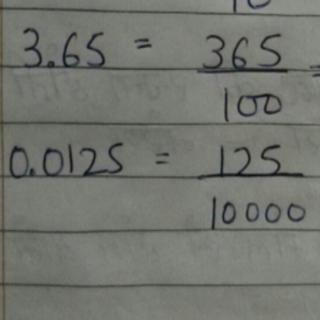 10
3.65 = 365/100 =
0.0125 = 125/10000